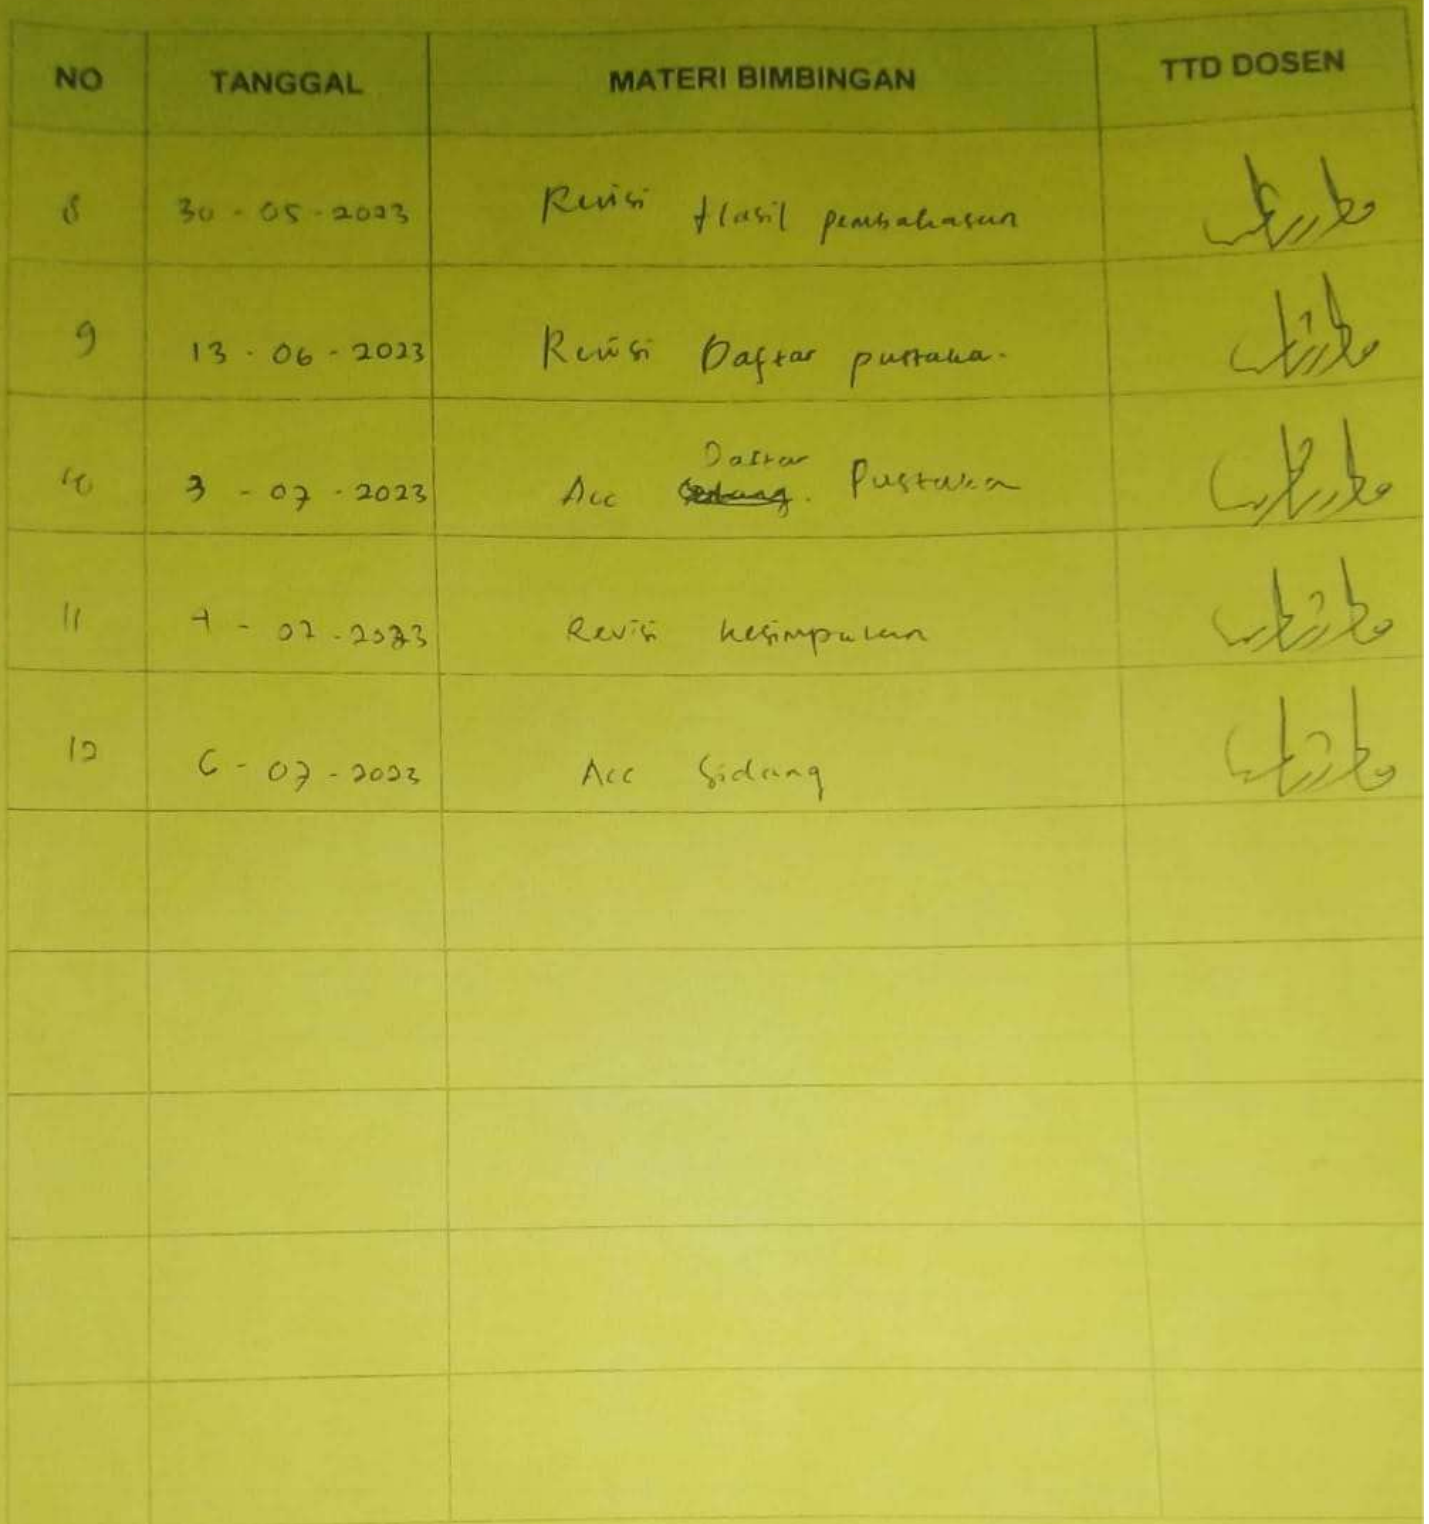 NO TANGGAL MATERI BIMBINGAN TTD DOSEN
8 30 - 05 - 2023 Revisi Hasil pembahasan
9 13 - 06 - 2023 Revisi Daftar pustaka.
Daftar
10 3 - 07 - 2023 Acc Pustaka
11 4 - 07 - 2023 Revisi kesimpulan
12 6 - 07 - 2023 Acc Sidang